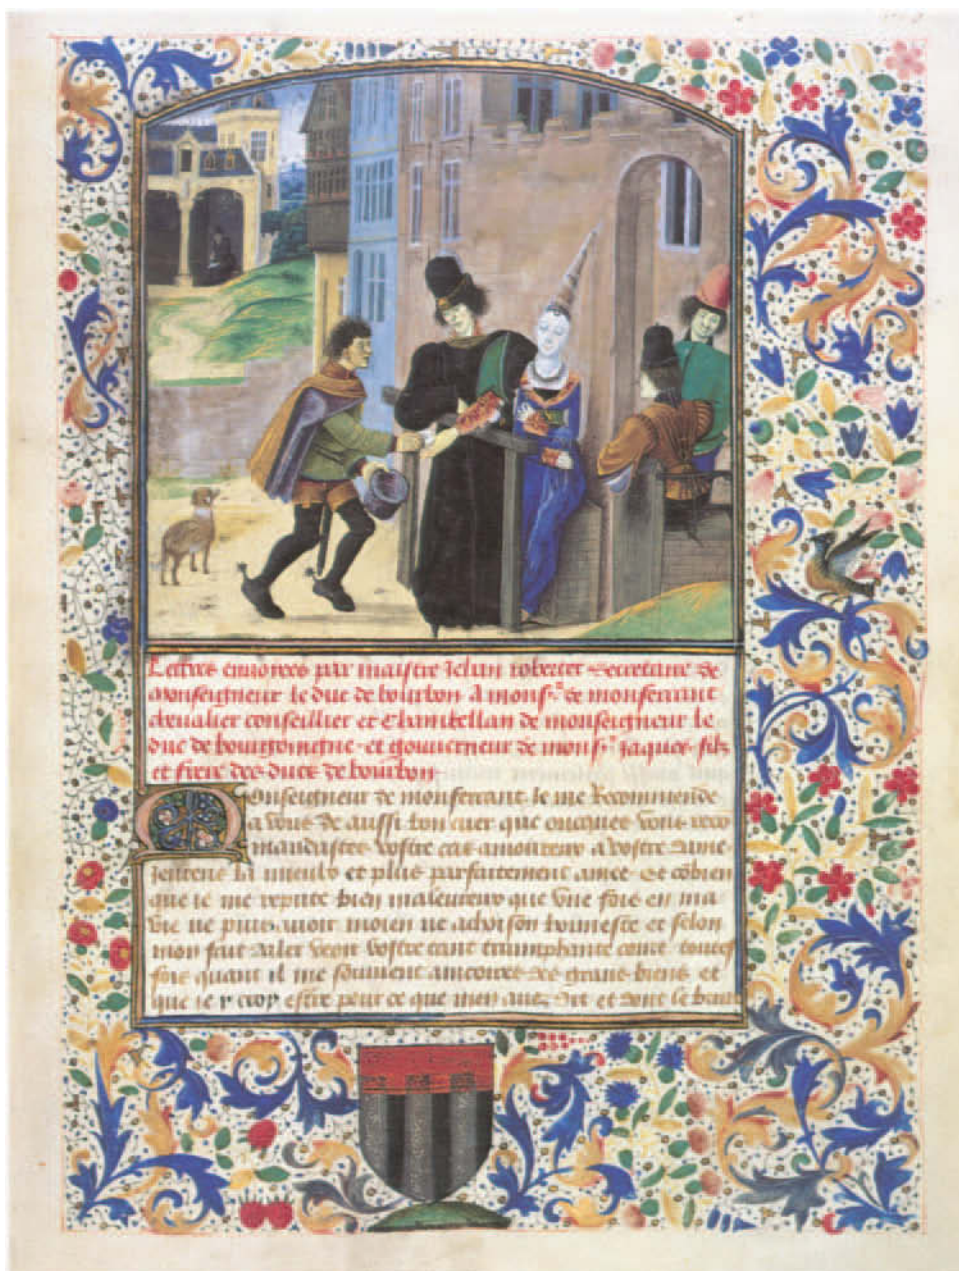 Lettres enuoyees par maistre Jehan robertet Secretaire de
monseigneur le duc de bourbon A monsr de monferrant
cheualier conseillier et Chambellan de monseigneur le
duc de bourgoingne et gouuerneur de monsr Jaques filz
et frere des ducz de bourbon
Monseigneur de monferrant Je me Recommende
a vous de aussi bon cuer que oncques vous reco
mandastes vostre cas amoureux a vostre dame
Jentens la mieulx et plus parfaitement amee Et cōbien
que Je me repute bien maleureux que vne fois en ma
vie ne puis auoir moien ne achoison honneste et selon
mon fait daler veoir vostre tant triumphante court toutes
fois quant il me souuient ancores des grans biens et
que Je y croy estre pour ce que men auez dit et dont le bruit